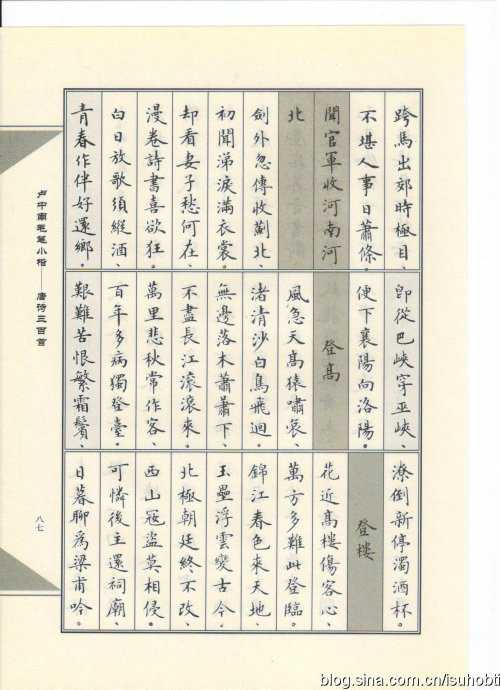 跨馬出郊時極目、
不堪人事日蕭條。
聞官軍收河南河
北
劍外忽傳收薊北、
初聞涕淚滿衣裳。
却看妻子愁何在、
漫卷詩書喜欲狂。
白日放歌須縱酒、
青春作伴好還鄉。
即從巴峽穿巫峽、
便下襄陽向洛陽。
登高
風急天高猿嘯哀、
渚清沙白鳥飛迴。
無邊落木蕭蕭下、
不盡長江滾滾來。
萬里悲秋常作客、
百年多病獨登臺。
艱難苦恨繁霜鬢、
潦倒新停濁酒杯。
登樓
花近高樓傷客心、
萬方多難此登臨。
錦江春色來天地、
玉壘浮雲變古今。
北極朝廷終不改、
西山寇盜莫相侵。
可憐後主還祠廟、
日暮聊為梁甫吟。
卢中南毛笔小楷——唐诗三百首
八七
blog.sina.com.cn/isuhobti